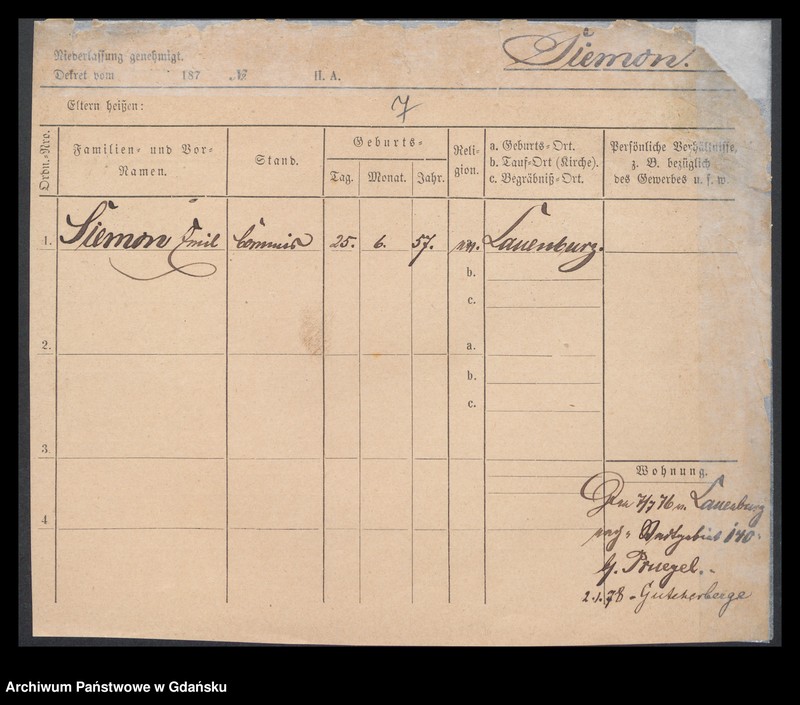 Siemon.
Niederlassung genehmigt.
Dekret vom 187 № II. A.
Eltern heißen: 7
Ordn.-Nro.
Familien- und Vor-
Namen.
Stand.
Geburts-
Tag. Monat. Jahr.
Reli-
gion.
a. Geburts-Ort.
b. Tauf-Ort (Kirche).
c. Begräbniß-Ort.
Persönliche Verhältnisse,
z. B. bezüglich
des Gewerbes u. s. w.
1. Siemon Emil Commis 25. 6. 57. ev. Lauenburg.
b.
c.
2. a.
b.
c.
3.
Wohnung.
7/7 76 v. Lauenburg
4
nach Stadtgebiet 140
b/. Pruegel.
2.1.78 - Guteherberge
Archiwum Państwowe w Gdańsku